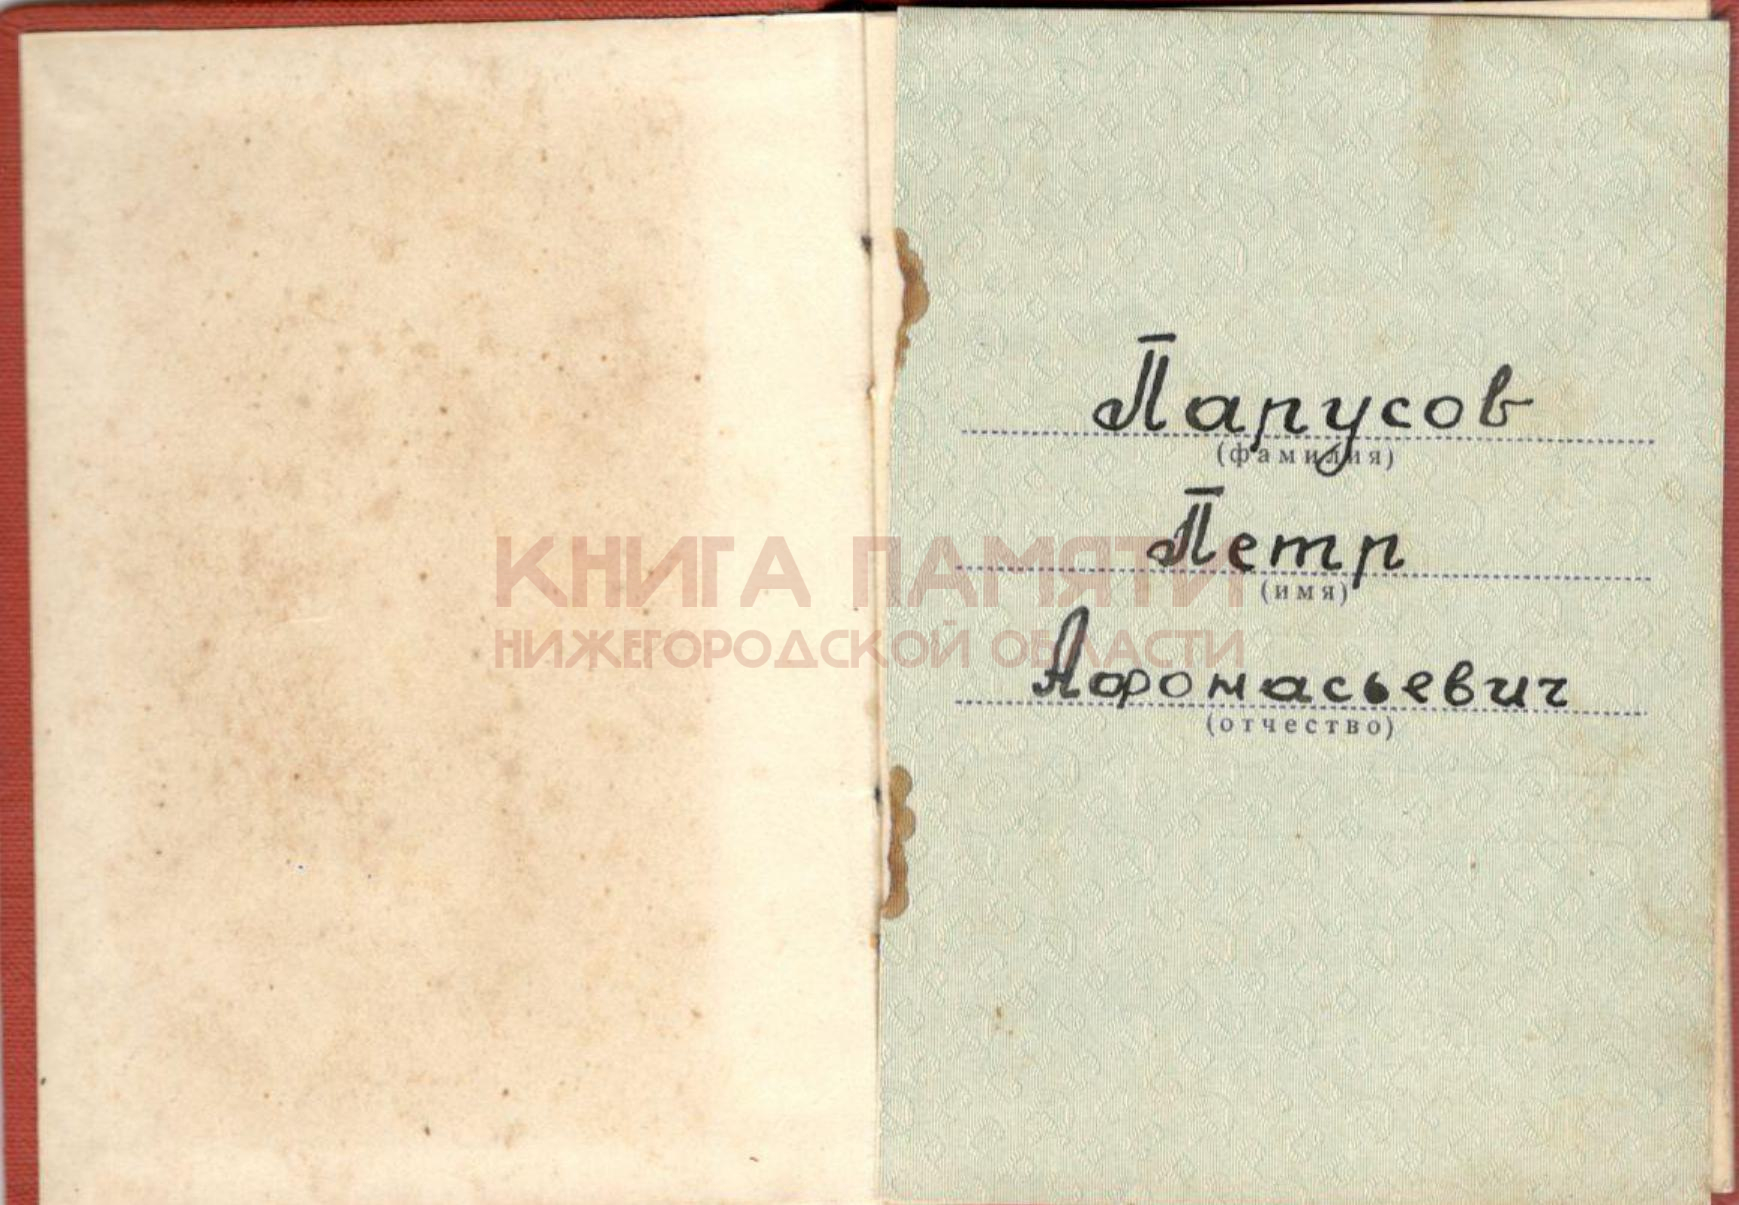 Парусов
(фамилия)
Петр
(имя)
КНИГА ПАМЯТИ
НИЖЕГОРОДСКОЙ ОБЛАСТИ
Афонасьевич
(отчество)